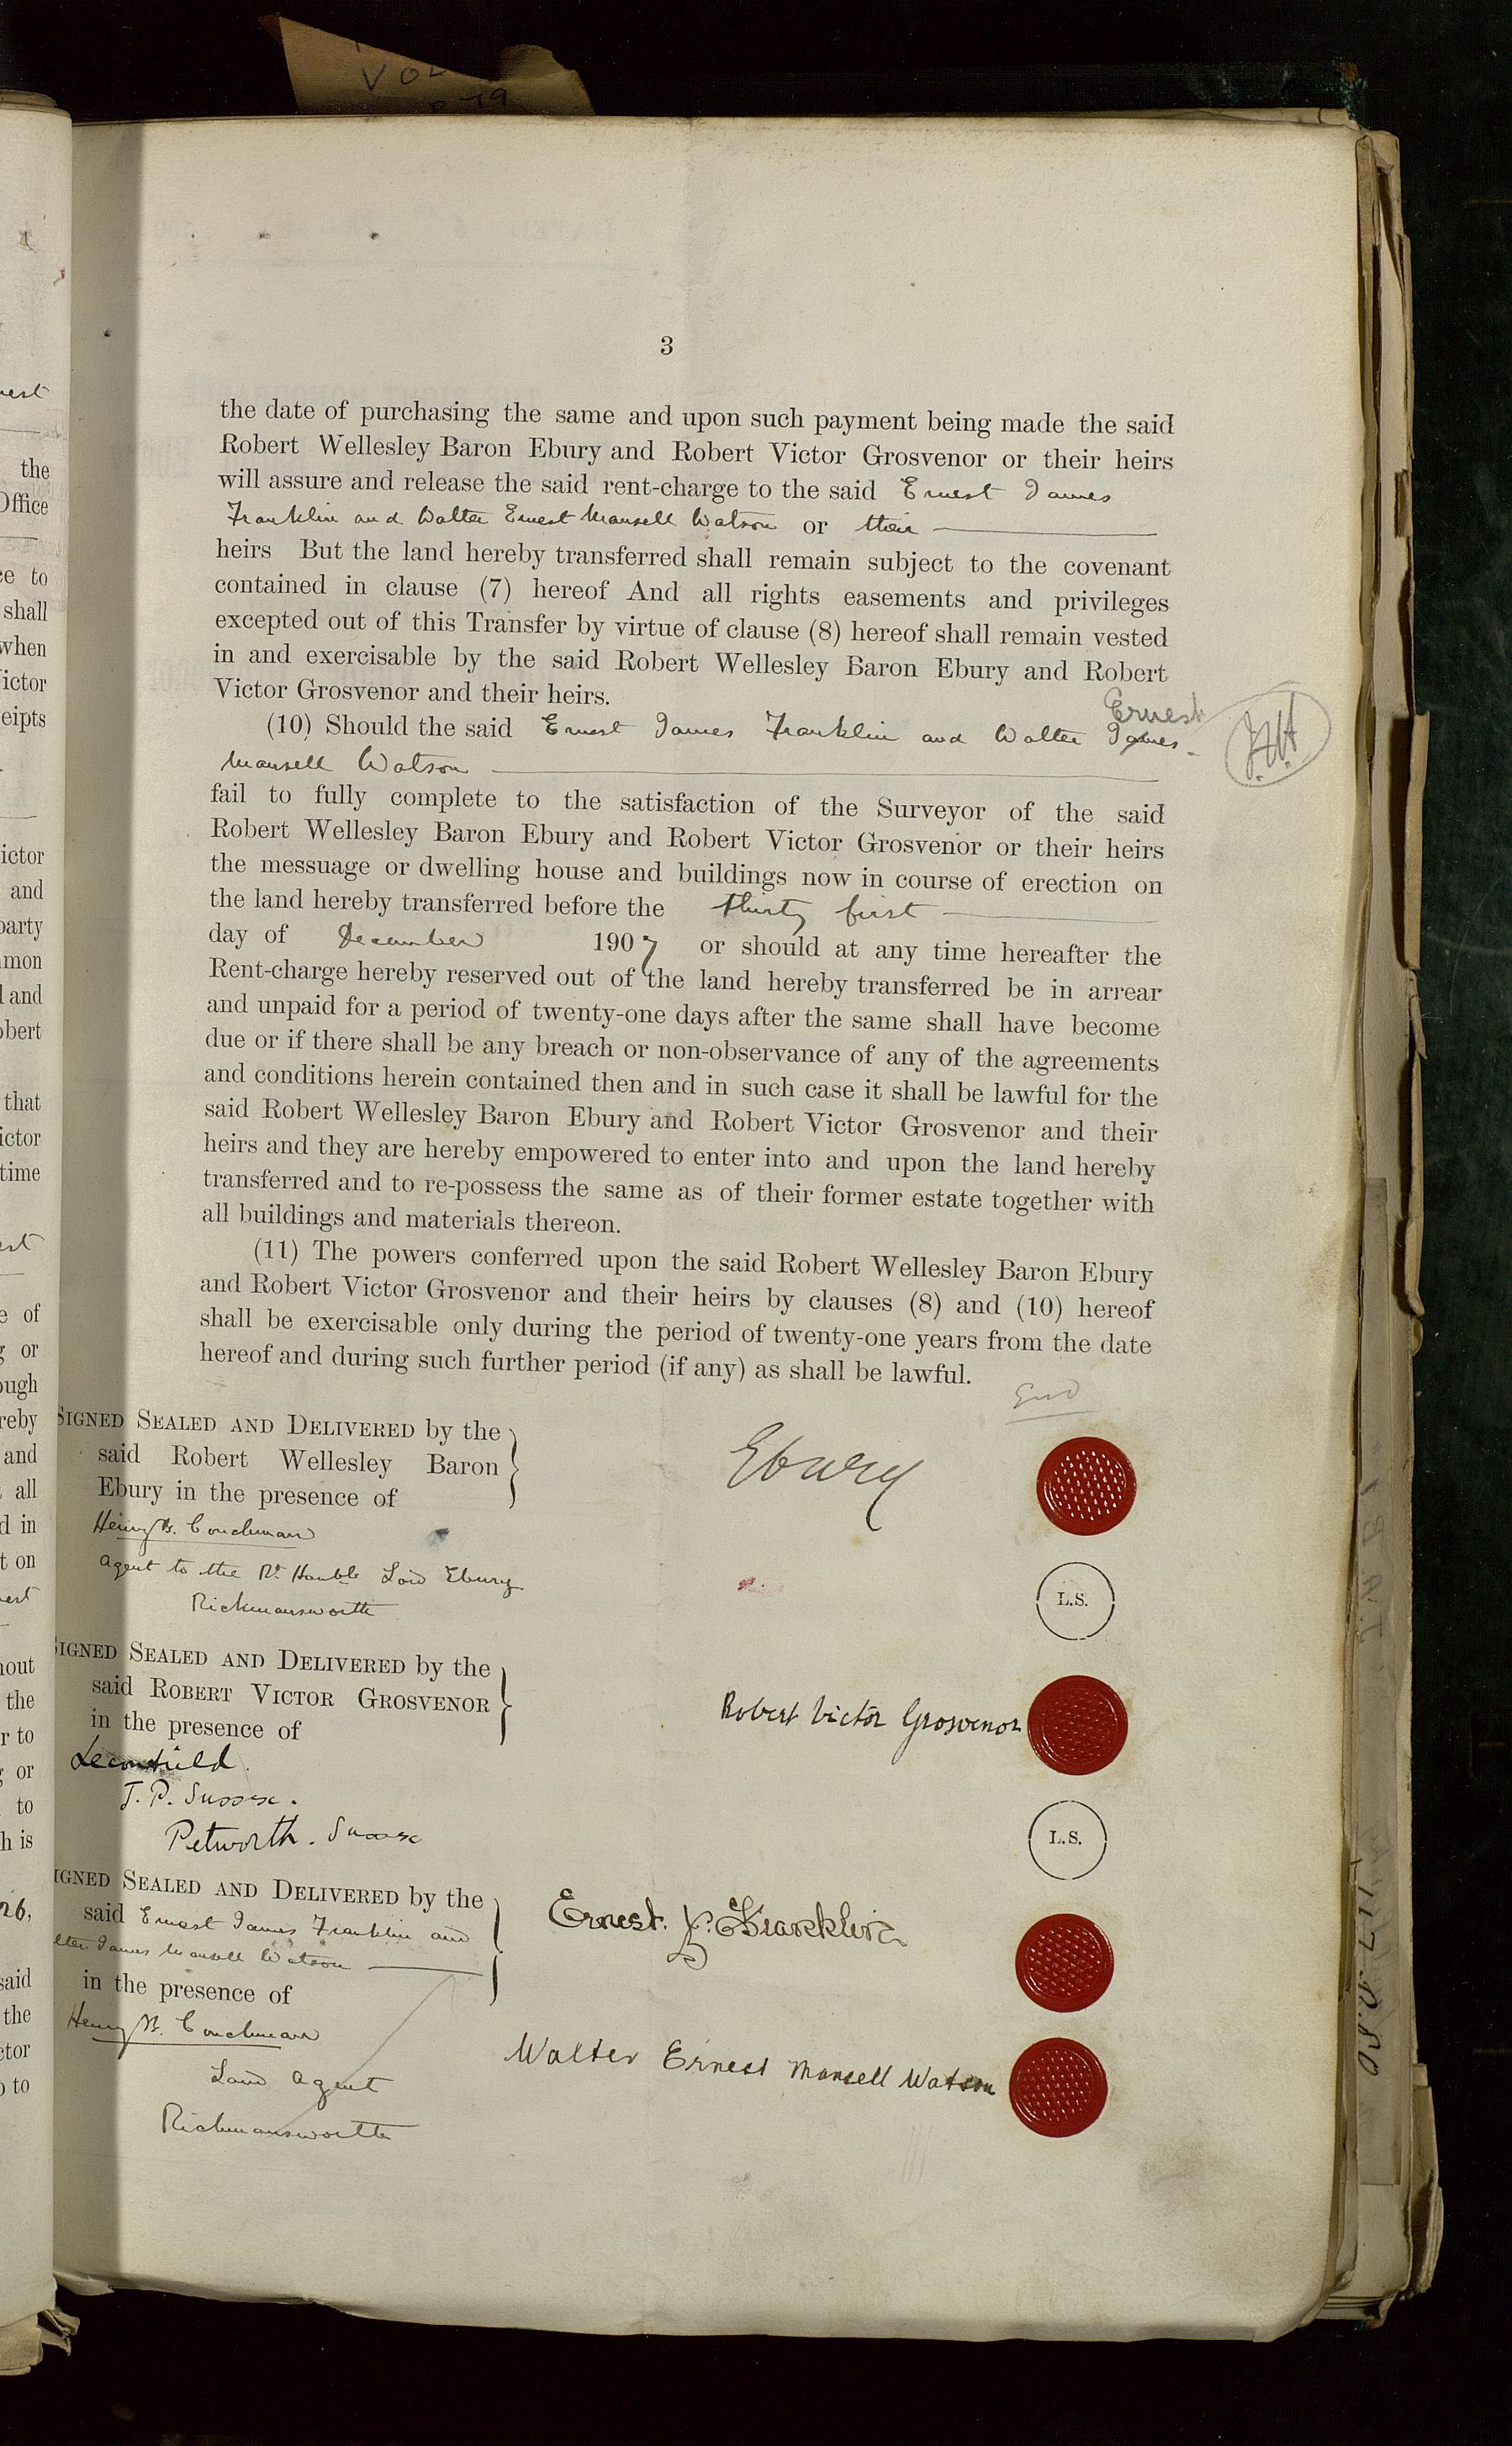 VOL
P 79
3
the date of purchasing the same and upon such payment being made the said
Robert Wellesley Baron Ebury and Robert Victor Grosvenor or their heirs
will assure and release the said rent-charge to the said Ernest James
Franklin and Walter Ernest Mansell Watson or their
heirs But the land hereby transferred shall remain subject to the covenant
contained in clause (7) hereof And all rights easements and privileges
excepted out of this Transfer by virtue of clause (8) hereof shall remain vested
in and exercisable by the said Robert Wellesley Baron Ebury and Robert
Victor Grosvenor and their heirs.
Ernest
(10) Should the said Ernest James Franklin and Walter James
Mansell Watson
fail to fully complete to the satisfaction of the Surveyor of the said
Robert Wellesley Baron Ebury and Robert Victor Grosvenor or their heirs
the messuage or dwelling house and buildings now in course of erection on
the land hereby transferred before the thirty first
day of December 1907 or should at any time hereafter the
Rent-charge hereby reserved out of the land hereby transferred be in arrear
and unpaid for a period of twenty-one days after the same shall have become
due or if there shall be any breach or non-observance of any of the agreements
and conditions herein contained then and in such case it shall be lawful for the
said Robert Wellesley Baron Ebury and Robert Victor Grosvenor and their
heirs and they are hereby empowered to enter into and upon the land hereby
transferred and to re-possess the same as of their former estate together with
all buildings and materials thereon.
(11) The powers conferred upon the said Robert Wellesley Baron Ebury
and Robert Victor Grosvenor and their heirs by clauses (8) and (10) hereof
shall be exercisable only during the period of twenty-one years from the date
hereof and during such further period (if any) as shall be lawful.
End
SIGNED SEALED AND DELIVERED by the
said Robert Wellesley Baron
Ebury in the presence of
Ebury
Henry B. Couchman
Agent to the Rt Honble Lord Ebury
Rickmansworth
L.S.
SIGNED SEALED AND DELIVERED by the
said ROBERT VICTOR GROSVENOR
in the presence of
Robert Victor Grosvenor
Leconfield.
J.P. Sussex.
Petworth. Sussex
L.S.
IGNED SEALED AND DELIVERED by the
said Ernest James Franklin and
lter James Mansell Watson
in the presence of
Ernest. J. Franklin
Henry B. Couchman
Land Agent
Rickmansworth
Walter Ernest Mansell Watson